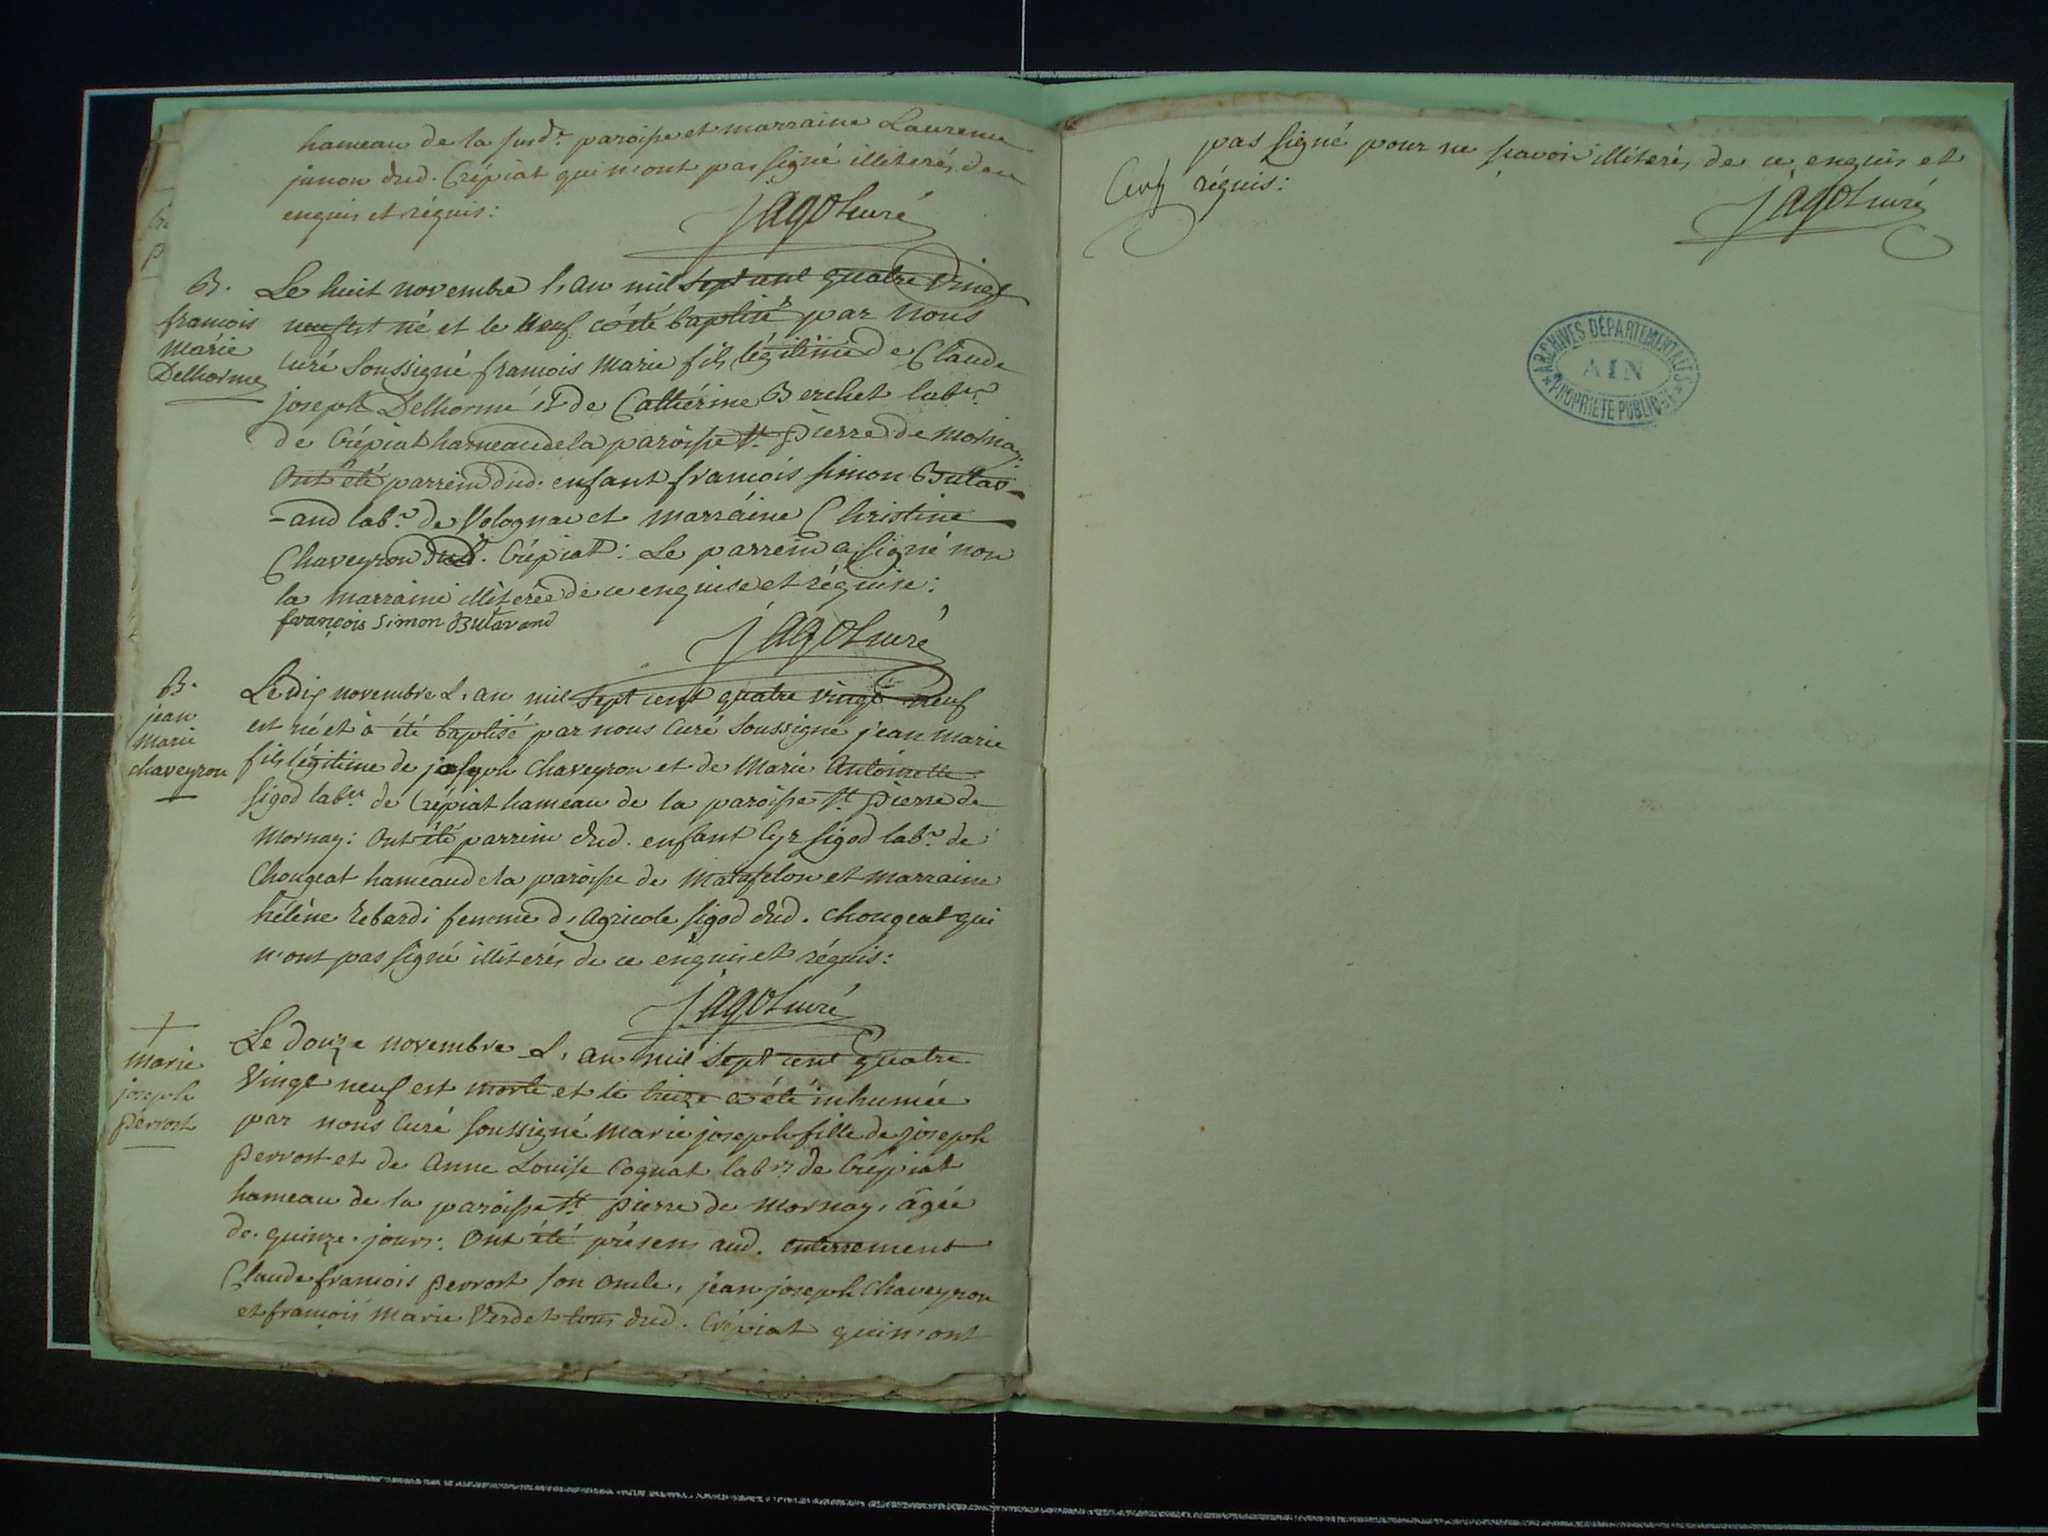 hameau de la susd.e paroisse et marraine Laurence
janon dud. Crépiat qui n'ont pas signé illiterés de ce
enquis et réquis:
jagot curé
B.
françois
marie
Delhorme
Le huit novembre l'an mil sept cent quatre vingt
neuf est né et le neuf a été baptisé par nous
curé soussigné françois marie fils légitime de Claude
joseph Delhorme et de Cathérine Berchet lab.rs
de Crépiat hameau de la paroisse st. pierre de mornay.
Ont été parrein dud. enfant françois simon Butav-
-and lab.r de Volognat et marraine Christine
Chaveyron dud. Crépiat: Le parrein a signé non
la marraine illiterée de ce enquise et réquise:
françois simon Butavand
jagot curé
B.
jean
marie
chaveyron
Le dix novembre L'an mil sept cent quatre vingt neuf
est né et à été baptisé par nous curé soussigné jean marie
fils légitime de joseph chaveyron et de marie antoinette
sigod lab.rs de Crépiat hameau de la paroisse st. pierre de
mornay: Ont été parrein dud. enfant Cyr sigod lab.r de
Chougeat hameau de la paroisse de matafelon et marraine
hélène Rebardi femme d'agricole sigod dud. chougeat qui
n'ont pas signé illiterés de ce enquis et réquis:
jagot curé
+
marie
joseph
perrost
Le douze novembre L'an mil sept cent quatre
vingt neuf est morte et le treize a été inhumée
par nous curé soussigné marie joseph fille de joseph
perrost et de anne Louise Cognat lab.rs de Crépiat
hameau de la paroisse st. pierre de mornay, agée
de quinze jours: Ont été présens aud. enterrement
Claude françois perrost son oncle, jean joseph Chaveyron
et françois marie Verdet tous dud. Crépiat qui n'ont
pas signé pour ne sçavoir illiterés de ce enquis et
réquis:
jagot curé
ARCHIVES DÉPARTEMENTALES
AIN
PROPRIÉTÉ PUBLIQUE